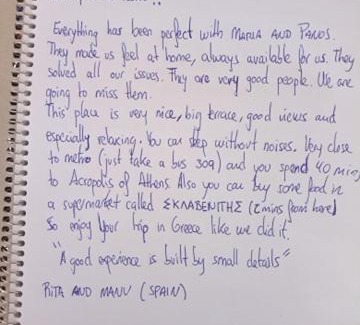 Everything has been perfect with MARIA AND PANOS.
They made us feel at home, always available for us. They
solved all our issues. They are very good people. We are
going to miss them.
This place is very nice, big terrace, good views and
especially relaxing. You can sleep without noises. Very close
to metro (just take a bus 309) and you spend 40 mins
to Acropolis of Athens. Also you can buy some food in
a supermarket called ΣΚΛΑΒΕΝΙΤΗΣ (2 mins from here)
So enjoy your trip in Greece like we did it.
"A good experience is built by small details"
RITA AND MANU (SPAIN)